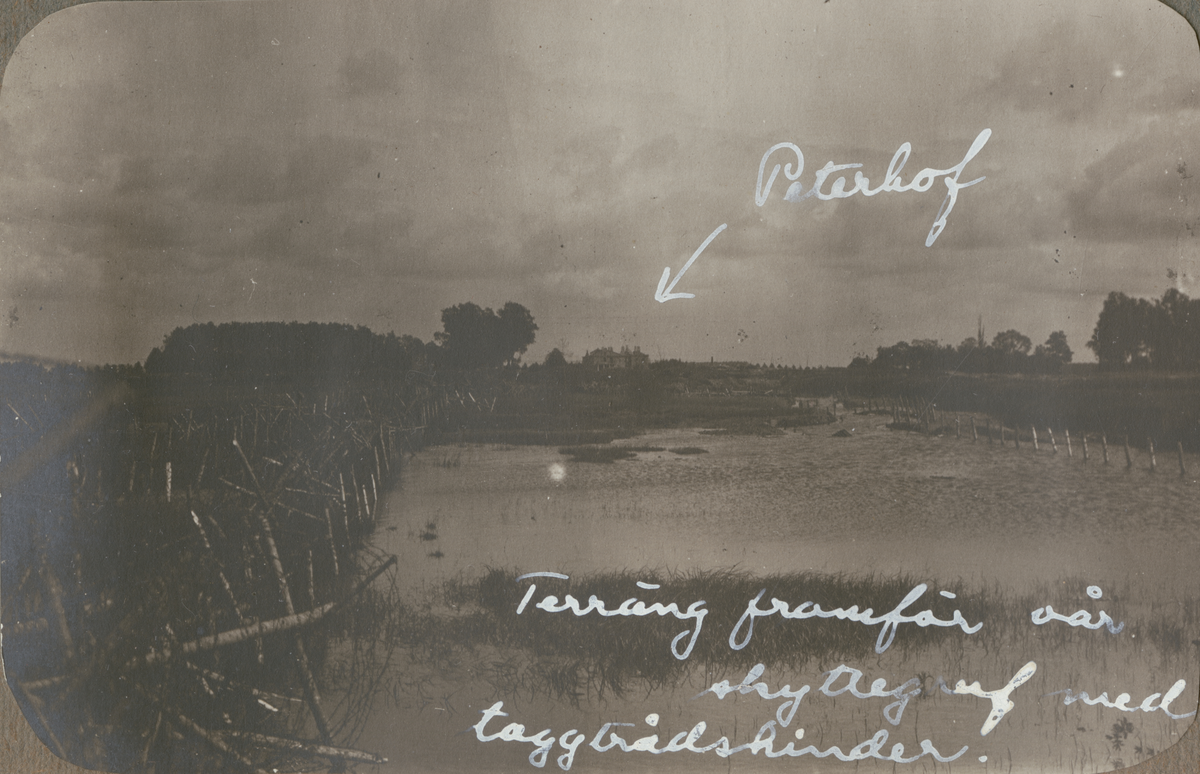 Peterhof
Terräng framför vår
skyttegraf med
taggtrådshinder.